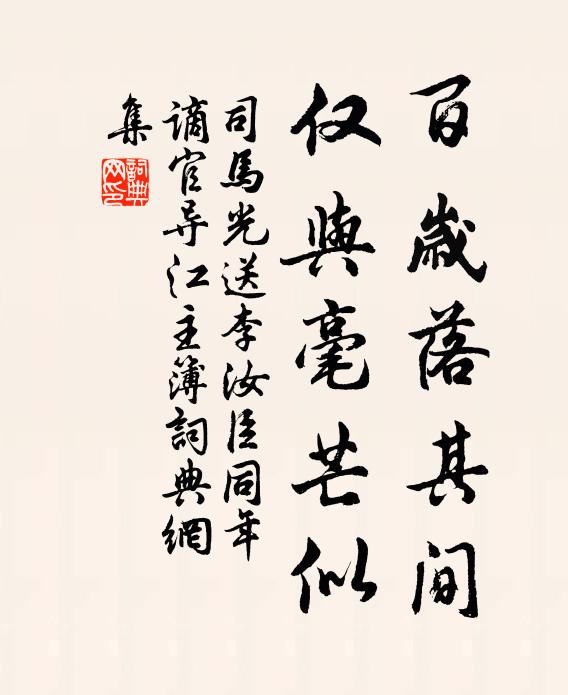 百歲落其间
仅與毫芒似
司馬光送李汝臣同年
谪官导江主簿詞典網
集
詞典網印